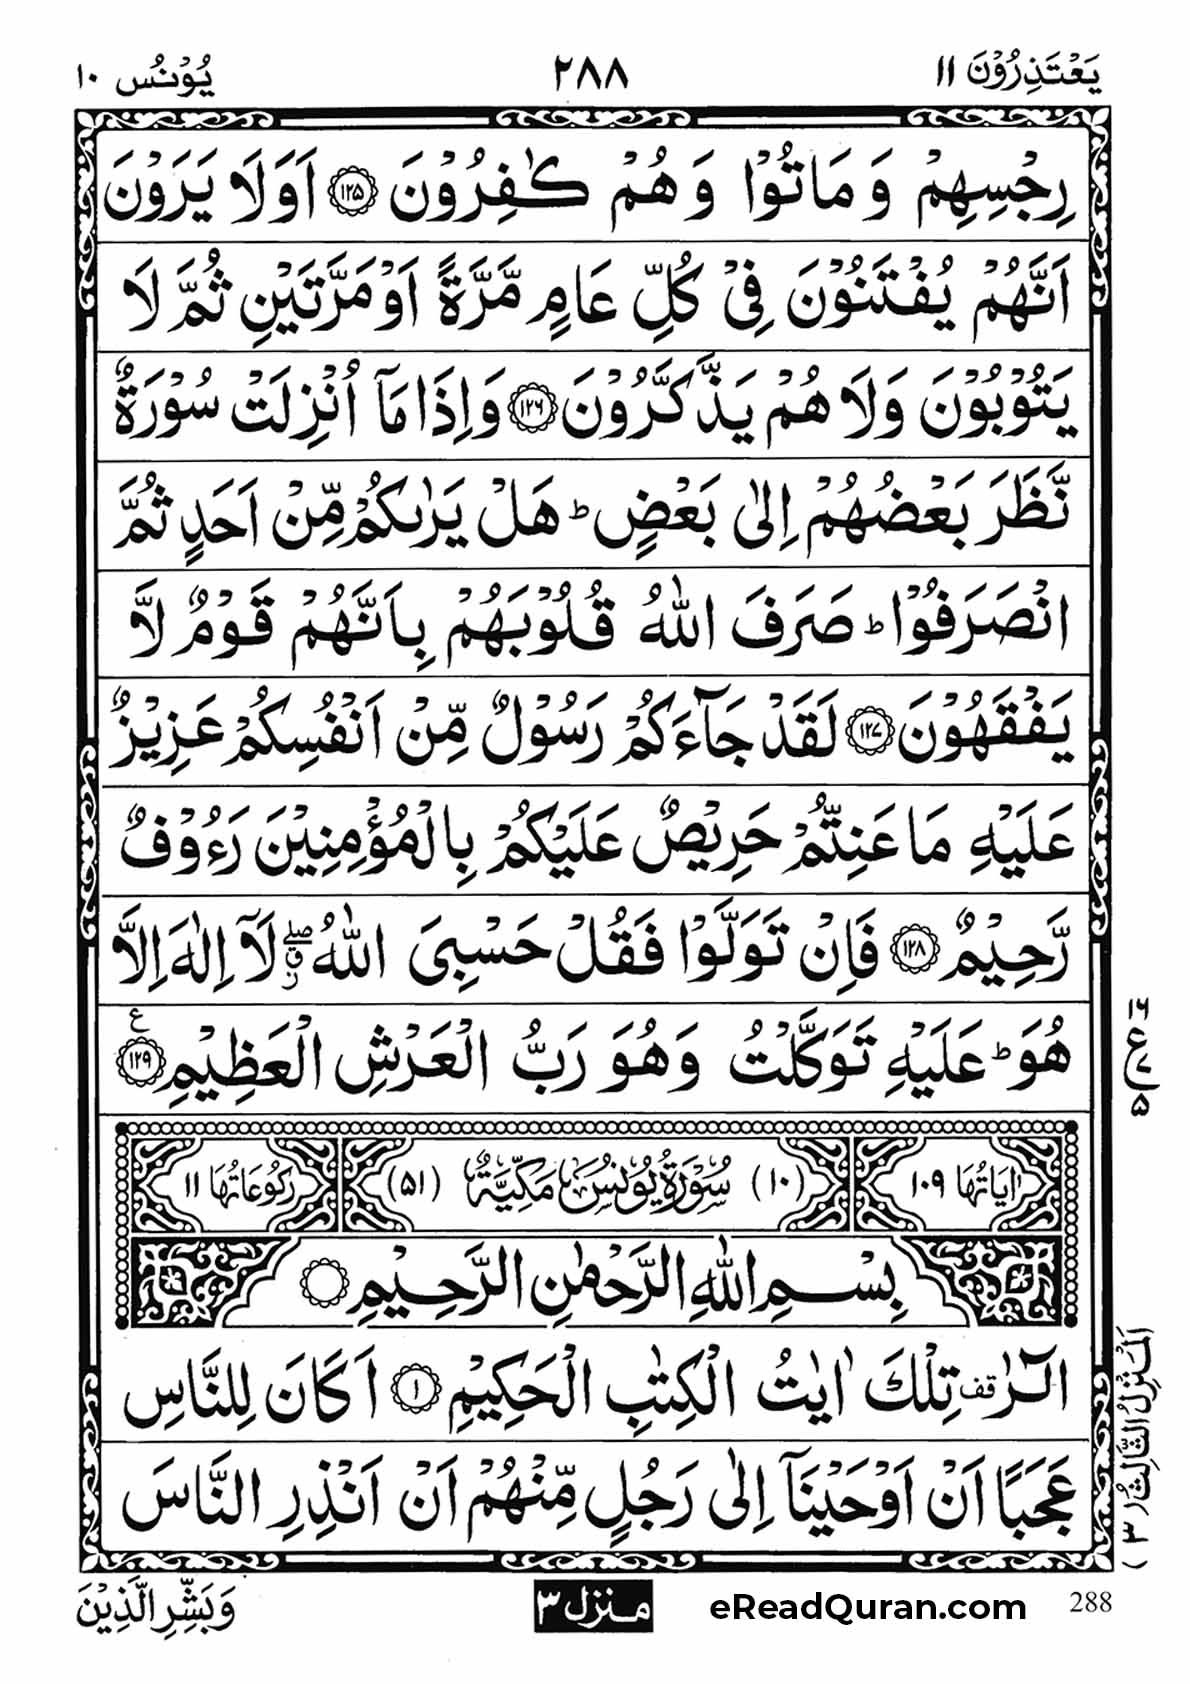 یَعْتَذِرُوْنَ ۱۱
۲۸۸
یُوْنُس ۱۰
رِجْسِهِمْ وَ مَاتُوْا وَ هُمْ كٰفِرُوْنَ ۝۱۲۵ اَوَلَا یَرَوْنَ
اَنَّهُمْ یُفْتَنُوْنَ فِیْ كُلِّ عَامٍ مَّرَّةً اَوْ مَرَّتَیْنِ ثُمَّ لَا
یَتُوْبُوْنَ وَلَا هُمْ یَذَّكَّرُوْنَ ۝۱۲۶ وَاِذَا مَاۤ اُنْزِلَتْ سُوْرَةٌ
نَّظَرَ بَعْضُهُمْ اِلٰی بَعْضٍ ؕ هَلْ یَرٰىكُمْ مِّنْ اَحَدٍ ثُمَّ
انْصَرَفُوْا ؕ صَرَفَ اللّٰهُ قُلُوْبَهُمْ بِاَنَّهُمْ قَوْمٌ لَّا
یَفْقَهُوْنَ ۝۱۲۷ لَقَدْ جَآءَكُمْ رَسُوْلٌ مِّنْ اَنْفُسِكُمْ عَزِیْزٌ
عَلَیْهِ مَا عَنِتُّمْ حَرِیْصٌ عَلَیْكُمْ بِالْمُؤْمِنِیْنَ رَءُوْفٌ
رَّحِیْمٌ ۝۱۲۸ فَاِنْ تَوَلَّوْا فَقُلْ حَسْبِیَ اللّٰهُ ۖ ق ز لَاۤ اِلٰهَ اِلَّا
هُوَ ؕ عَلَیْهِ تَوَكَّلْتُ وَهُوَ رَبُّ الْعَرْشِ الْعَظِیْمِ ۝۱۲۹ ع
۱۶
ع
۷
۵
اٰیَاتُهَا ۱۰۹
(۱۰) سُوْرَةُ یُوْنُسَ مَكِّیَّةٌ (۵۱)
رُكُوْعَاتُهَا ۱۱
بِسْمِ اللّٰهِ الرَّحْمٰنِ الرَّحِیْمِ
الٓرٰ قف تِلْكَ اٰیٰتُ الْكِتٰبِ الْحَكِیْمِ ۝۱ اَكَانَ لِلنَّاسِ
عَجَبًا اَنْ اَوْحَیْنَاۤ اِلٰی رَجُلٍ مِّنْهُمْ اَنْ اَنْذِرِ النَّاسَ
اَلْمَنْزِلُ الثَّالِثُ (۳)
وَبَشِّرِ الَّذِیْنَ
منزل ۳
eReadQuran.com
288